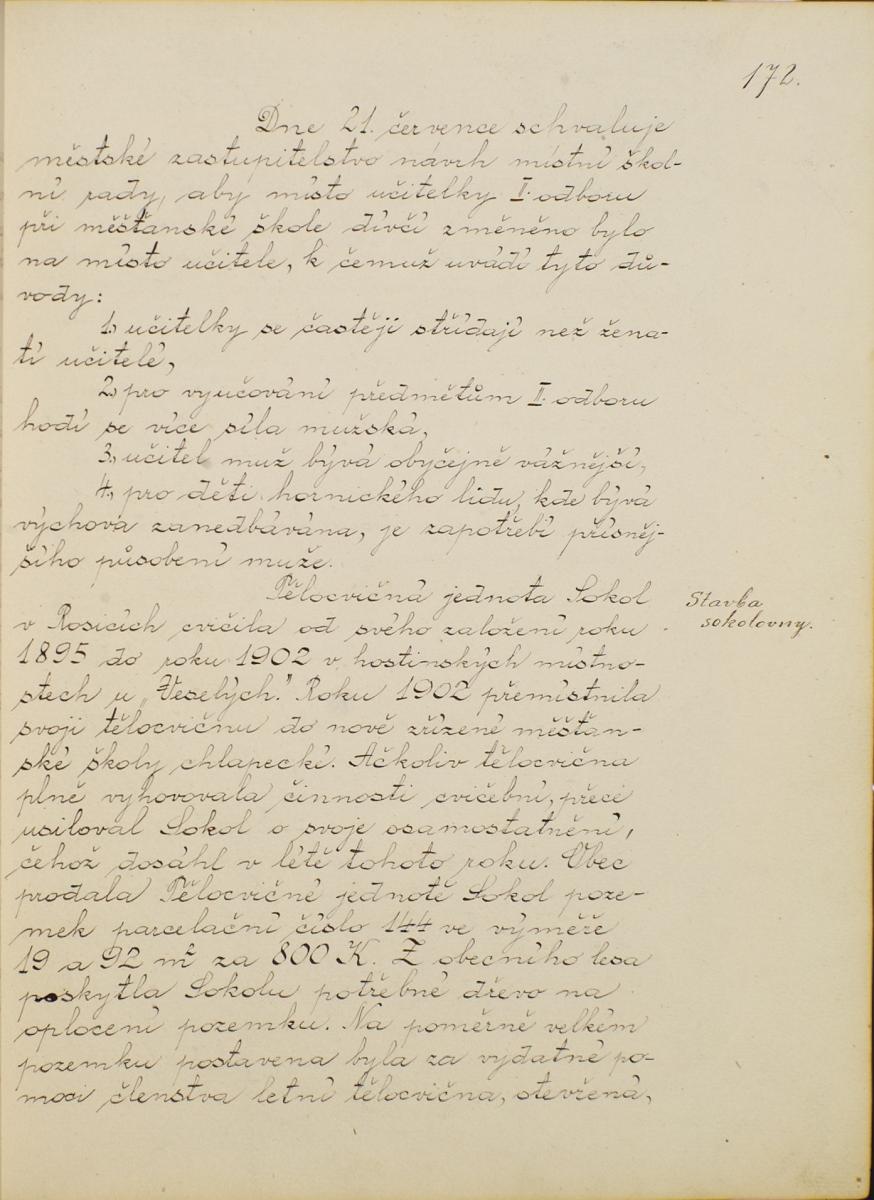 172.
Dne 21. července schvaluje
městské zastupitelstvo návrh místní škol-
ní rady, aby místo učitelky II. odboru
při měšťanské škole dívčí změněno bylo
na místo učitele, k čemuž uvádí tyto dů-
vody:
1., učitelky se častěji střídají než žena-
tí učitelé,
2., pro vyučování předmětům II. odboru
hodí se více síla mužská,
3., učitel muž bývá obyčejně vážnější,
4., pro děti hornického lidu, kde bývá
výchova zanedbávána, je zapotřebí přísněj-
šího působení muže.
Tělocvičná jednota Sokol
v Rosicích cvičila od svého založení roku
1895 do roku 1902 v hostinských místno-
stech u „Veselých.“ Roku 1902 přemístnila
svoji tělocvičnu do nově zřízené měšťan-
ské školy chlapecké. Ačkoliv tělocvična
plně vyhovovala činnosti cvičební, přece
usiloval Sokol o svoje osamostatnění,
čehož dosáhl v létě tohoto roku. Obec
prodala Tělocvičné jednotě Sokol poze-
mek parcelační číslo 144 ve výměře
19 a 92 m² za 800 K. Z obecního lesa
poskytla Sokolu potřebné dřevo na
oplocení pozemku. Na poměrně velkém
pozemku postavena byla za vydatné po-
moci členstva letní tělocvična, otevřená,
Stavba
sokolovny.